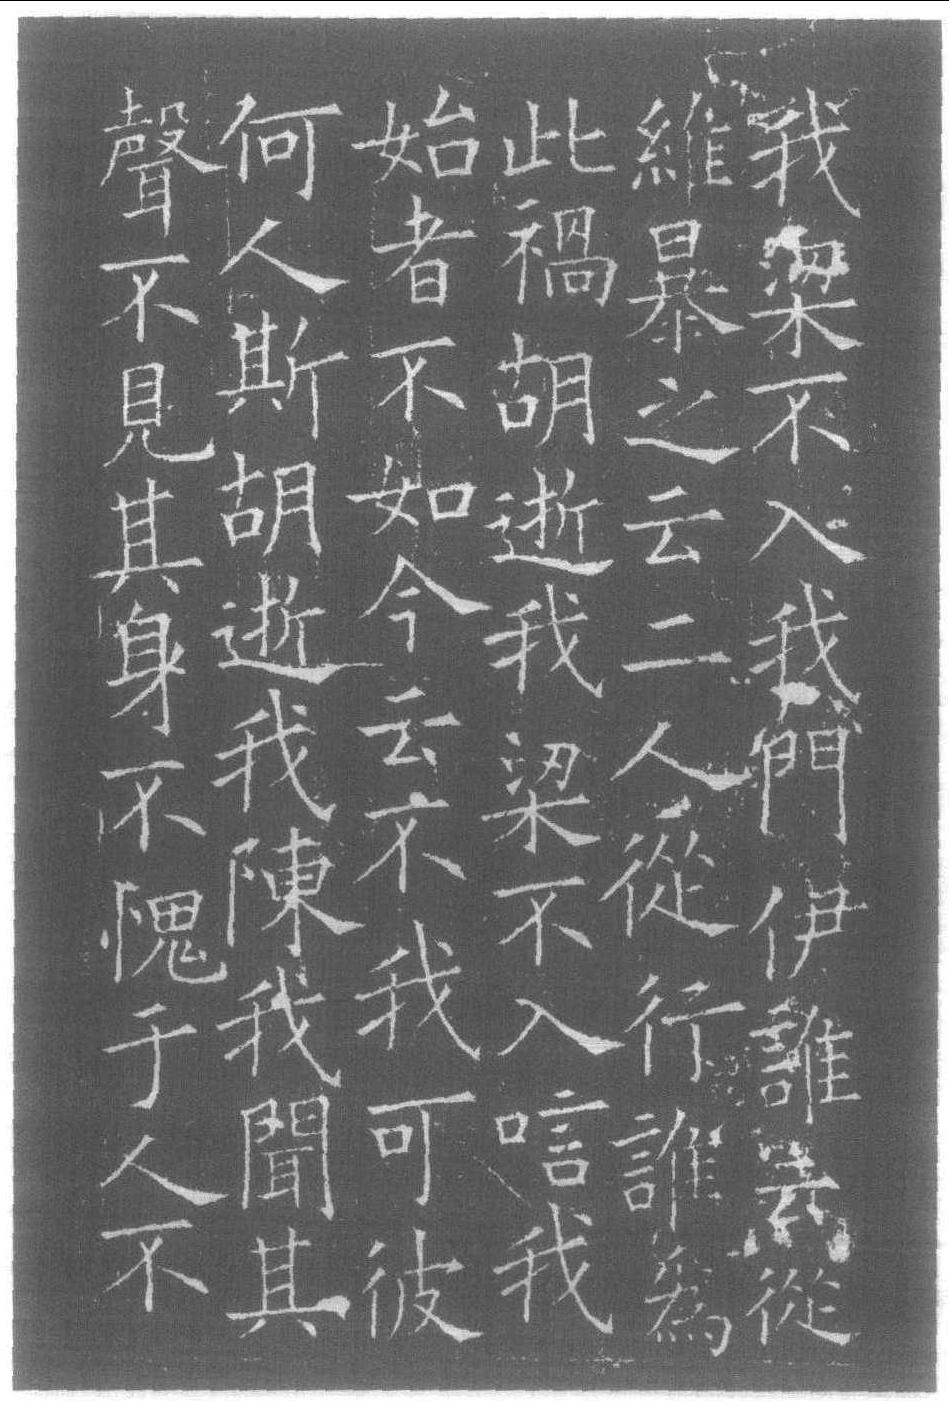 我梁不入我門伊誰云從
維暴之云二人從行誰爲
此禍胡逝我梁不入唁我
始者不如今云不我可彼
何人斯胡逝我陳我聞其
聲不見其身不愧于人不